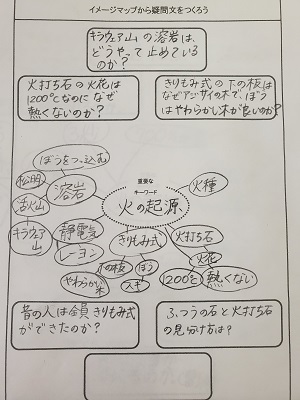 イメージマップから疑問文をつくろう
キラウェア山の溶岩は、
どうやって止めている
のか?
火打ち石の火花は
1200℃なのになぜ
熱くないのか?
きりもみ式の下の板は
なぜアジサイの木で、ぼう
はやわらかい木が良いのか?
ぼうをつっ込む
松明
溶岩
活火山
キラウェア
山
静電気
レーヨン
重要な
キーワード
火の起源
火種
きりもみ式
下の板
ぼう
やわらかい
スギ
火打ち石
火花
1200℃
熱くない
昔の人は全員きりもみ式
ができたのか?
ふつうの石と火打ち石
の見分け方は?